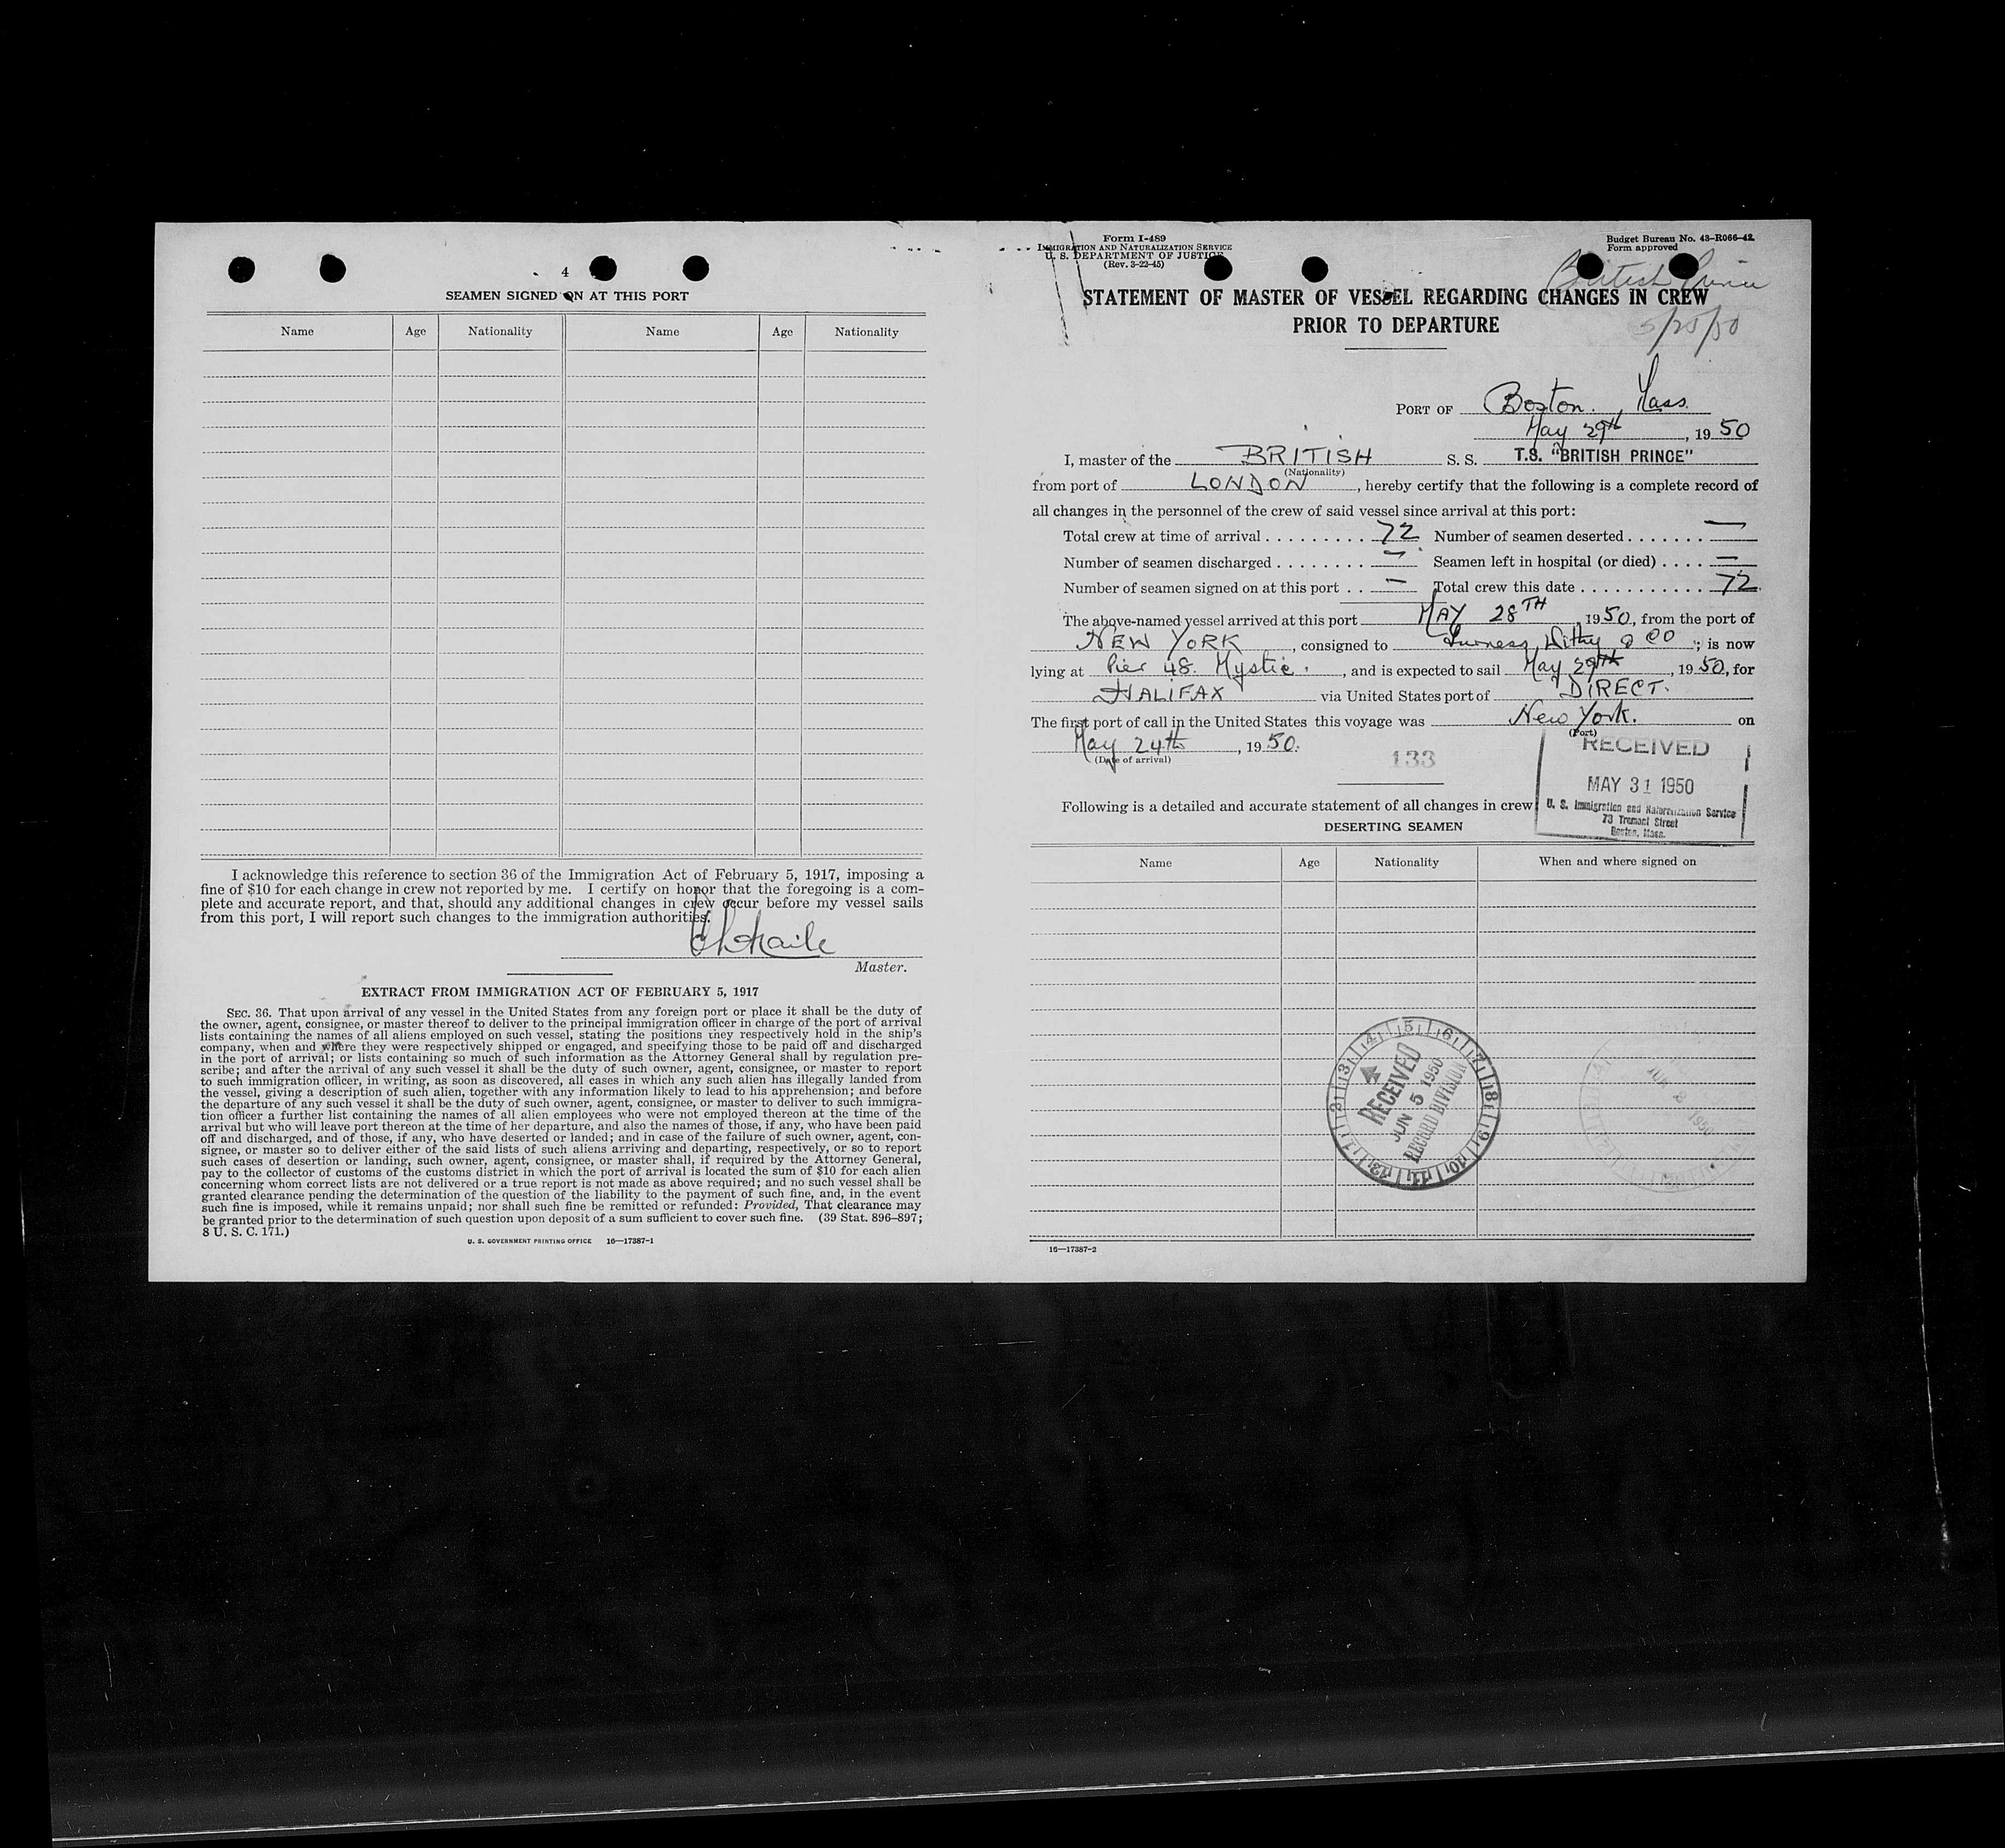 4
SEAMEN SIGNED ON AT THIS PORT
Name Age Nationality Name Age Nationality
I acknowledge this reference to section 36 of the Immigration Act of February 5, 1917, imposing a
fine of $10 for each change in crew not reported by me. I certify on honor that the foregoing is a com-
plete and accurate report, and that, should any additional changes in crew occur before my vessel sails
from this port, I will report such changes to the immigration authorities.
Master.
EXTRACT FROM IMMIGRATION ACT OF FEBRUARY 5, 1917
SEC. 36. That upon arrival of any vessel in the United States from any foreign port or place it shall be the duty of
the owner, agent, consignee, or master thereof to deliver to the principal immigration officer in charge of the port of arrival
lists containing the names of all aliens employed on such vessel, stating the positions they respectively hold in the ship's
company, when and where they were respectively shipped or engaged, and specifying those to be paid off and discharged
in the port of arrival; or lists containing so much of such information as the Attorney General shall by regulation pre-
scribe; and after the arrival of any such vessel it shall be the duty of such owner, agent, consignee, or master to report
to such immigration officer, in writing, as soon as discovered, all cases in which any such alien has illegally landed from
the vessel, giving a description of such alien, together with any information likely to lead to his apprehension; and before
the departure of any such vessel it shall be the duty of such owner, agent, consignee, or master to deliver to such immigra-
tion officer a further list containing the names of all alien employees who were not employed thereon at the time of the
arrival but who will leave port thereon at the time of her departure, and also the names of those, if any, who have been paid
off and discharged, and of those, if any, who have deserted or landed; and in case of the failure of such owner, agent, con-
signee, or master so to deliver either of the said lists of such aliens arriving and departing, respectively, or so to report
such cases of desertion or landing, such owner, agent, consignee, or master shall, if required by the Attorney General,
pay to the collector of customs of the customs district in which the port of arrival is located the sum of $10 for each alien
concerning whom correct lists are not delivered or a true report is not made as above required; and no such vessel shall be
granted clearance pending the determination of the question of the liability to the payment of such fine, and, in the event
such fine is imposed, while it remains unpaid; nor shall such fine be remitted or refunded: Provided, That clearance may
be granted prior to the determination of such question upon deposit of a sum sufficient to cover such fine. (39 Stat. 896–897;
8 U. S. C. 171.)
U. S. GOVERNMENT PRINTING OFFICE 16—17387-1
Form I-489
IMMIGRATION AND NATURALIZATION SERVICE
U. S. DEPARTMENT OF JUSTICE
(Rev. 3-22-45)
Budget Bureau No. 43–R066-42.
Form approved
British Prince
5/25/50
STATEMENT OF MASTER OF VESSEL REGARDING CHANGES IN CREW
PRIOR TO DEPARTURE
PORT OF Boston, Mass.
May 29th, 1950
I, master of the BRITISH S. S. T.S. "BRITISH PRINCE"
(Nationality)
from port of LONDON, hereby certify that the following is a complete record of
all changes in the personnel of the crew of said vessel since arrival at this port:
Total crew at time of arrival 72 Number of seamen deserted —
Number of seamen discharged — Seamen left in hospital (or died) —
Number of seamen signed on at this port — Total crew this date 72
The above-named vessel arrived at this port MAY 28TH, 1950, from the port of
NEW YORK, consigned to Furness Withy & CO; is now
lying at Pier 48. Mystic., and is expected to sail May 29th, 1950, for
HALIFAX via United States port of DIRECT.
The first port of call in the United States this voyage was New York. on
(Port)
May 24th, 1950.
(Date of arrival)
133
RECEIVED
MAY 31 1950
U. S. Immigration and Naturalization Service
73 Tremont Street
Boston, Mass.
Following is a detailed and accurate statement of all changes in crew
DESERTING SEAMEN
Name Age Nationality When and where signed on
RECEIVED
JUN 5 1950
RECORD DIVISION
JUN 8 1950
16—17387-2